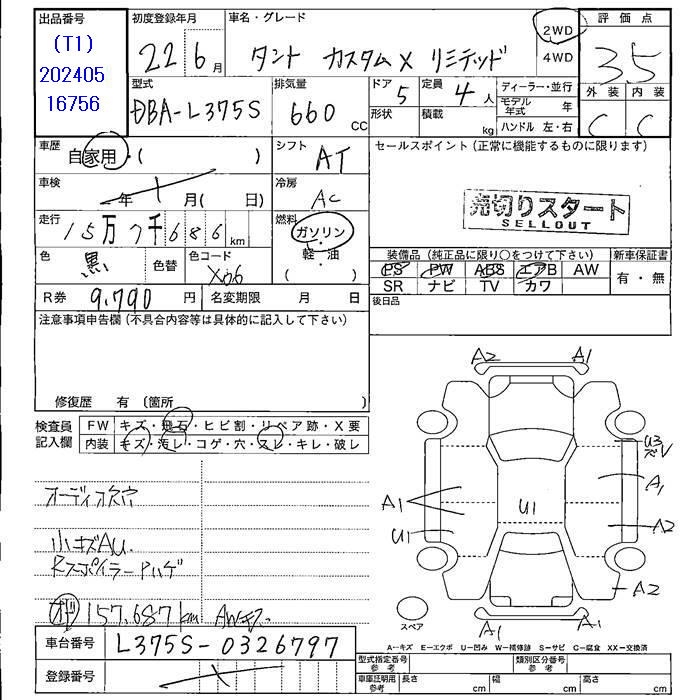 出品番号
(T1)
202405
16756
初度登録年月
22 6月
車名・グレード
タント カスタムX リミテッド
2WD
4WD
評価点
3.5
外装 内装
C C
型式
DBA-L375S
排気量
660 CC
ドア 5
形状
定員 4人
積載 kg
ディーラー・並行
モデル年式 年
ハンドル 左・右
車歴
自家用・( )
シフト AT
セールスポイント (正常に機能するものに限ります)
売切りスタート
SELLOUT
車検
年 月( 日)
冷房 AC
走行
15万7千686km
燃料
ガソリン
軽・油
( )
色 黒 色替
色コード X06
装備品 (純正品に限り○をつけて下さい)
PS PW ABS エアB AW
SR ナビ TV カワ
新車保証書
有・無
R券 9,790円
名変期限 月 日
後日品
注意事項申告欄 (不具合内容等は具体的に記入して下さい)
修復歴 有 (箇所 )
検査員記入欄
FW キズ・飛石・ヒビ割・リペア跡・X要
内装 キズ・汚レ・コゲ・穴・スレ・キレ・破レ
オーディオ欠穴
小キズAU.
Rスポイラー Pハゲ
オド 157,687km AWキズ
A2 A1
U3
A1
A2
A1
U1
U1
A2
A1 A1
スペア
車台番号 L375S-0326797
登録番号
A…キズ E…エクボ U…凹み W…補修跡 S…サビ C…腐食 XX…交換済
型式指定番号 参考
類別区分番号 参考
車庫証明用 参考
長さ cm
幅 cm
高さ cm